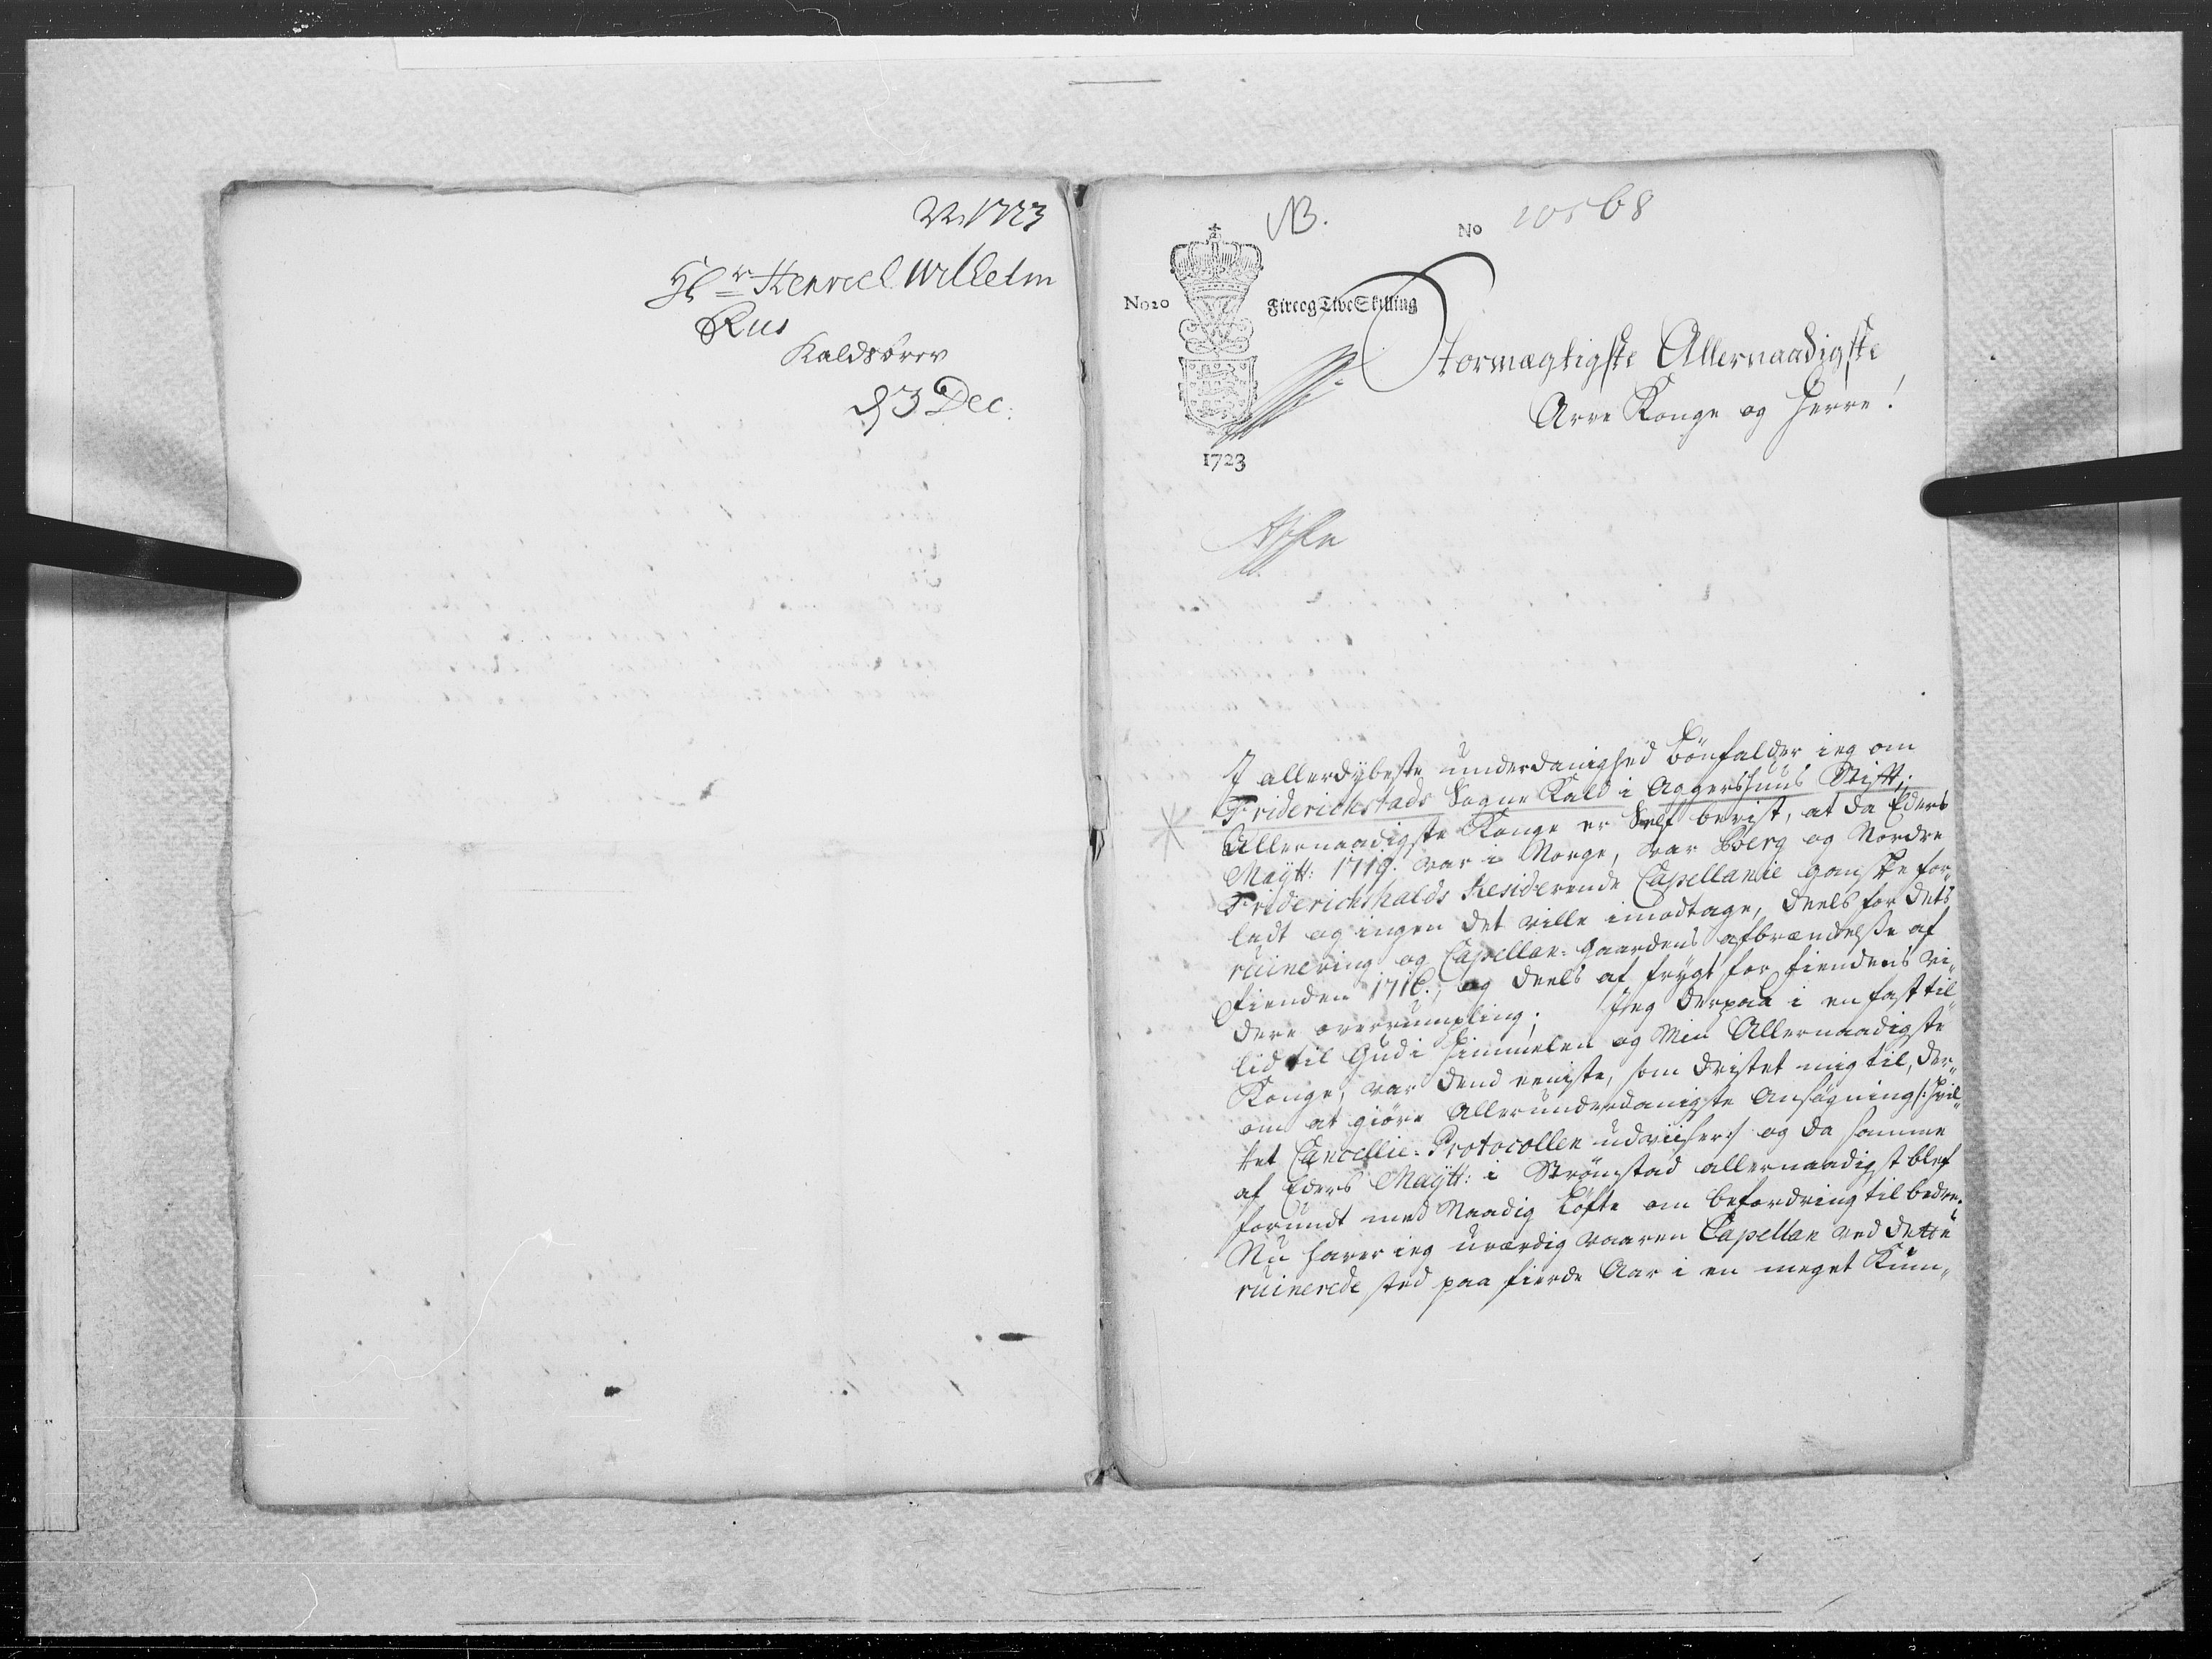 1723
Hr Henrich Wilhelm
Rus
Kaldsbrev
d 3 Dec:
NB.
No 20568
No 20
Fire og Tive Skilling
1723
Stormægtigste Allernaadigste
Arve Konge og Herre!
I allerdybeste underdanighed bönfalder ieg om
Friderichstads Sogne Kald i Aggershuus Stift;
Allernaadigste Konge er Self bevist, at da Eders
Maytt: 1719. var i Norge, var Berg og Nordre
Friderichshalds Residerende Capellanie ganske for„
ladt og ingen det ville imodtage, deels for dets
ruinering og Capellan-gaardens afbrændelse af
Fienden 1716., og deels af frygt for fiendens vi„
dere overrumpling; Jeg derpaa i en fast til„
lid til Gud i himmelen og Min Allernaadigste
Konge, var dend eeniste, som dristet mig til, der„
om at giöre Allerunderdanigste Ansögning /: hvil„
ket Cancellie-Protocollen udviiser :/ og da samme
af Eders Maytt: i Strömstad allernaadigst blef
forundt med Naadig Löfte om befordring til bedre;
Nu haver ieg uværdig vaaren Capellan ved dette
ruinerede sted paa fierde Aar i en meget Kum„